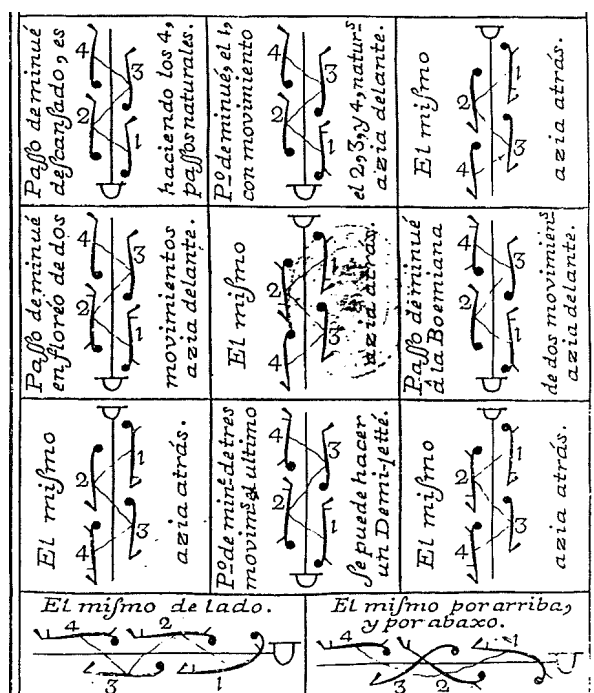 Paſſo de minué
deſcanſado, es
4
3
2
1
haciendo los 4,
paſſos naturales.
Pº de minué, el 1,
con movimiento
4
3
2
1
el 2, 3, y 4, naturˢ
azia delante.
El miſmo
1
2
3
4
azia atrás.
Paſſo de minué
en floréo de dos
4
3
2
1
movimientos
azia delante.
El miſmo
1
2
3
4
azia atrás.
Paſſo de minué
á la Boemiana
4
3
2
1
de dos movimienˢ
azia delante.
El miſmo
1
2
3
4
azia atrás.
Pº de minᵉ de tres
movimˢ el ultimo
4
3
2
1
ſe puede hacer
un Demi-jetté.
El miſmo
1
2
3
4
azia atrás.
El miſmo de lado.
4
2
3
1
El miſmo por arriba,
y por abaxo.
4
1
3
2